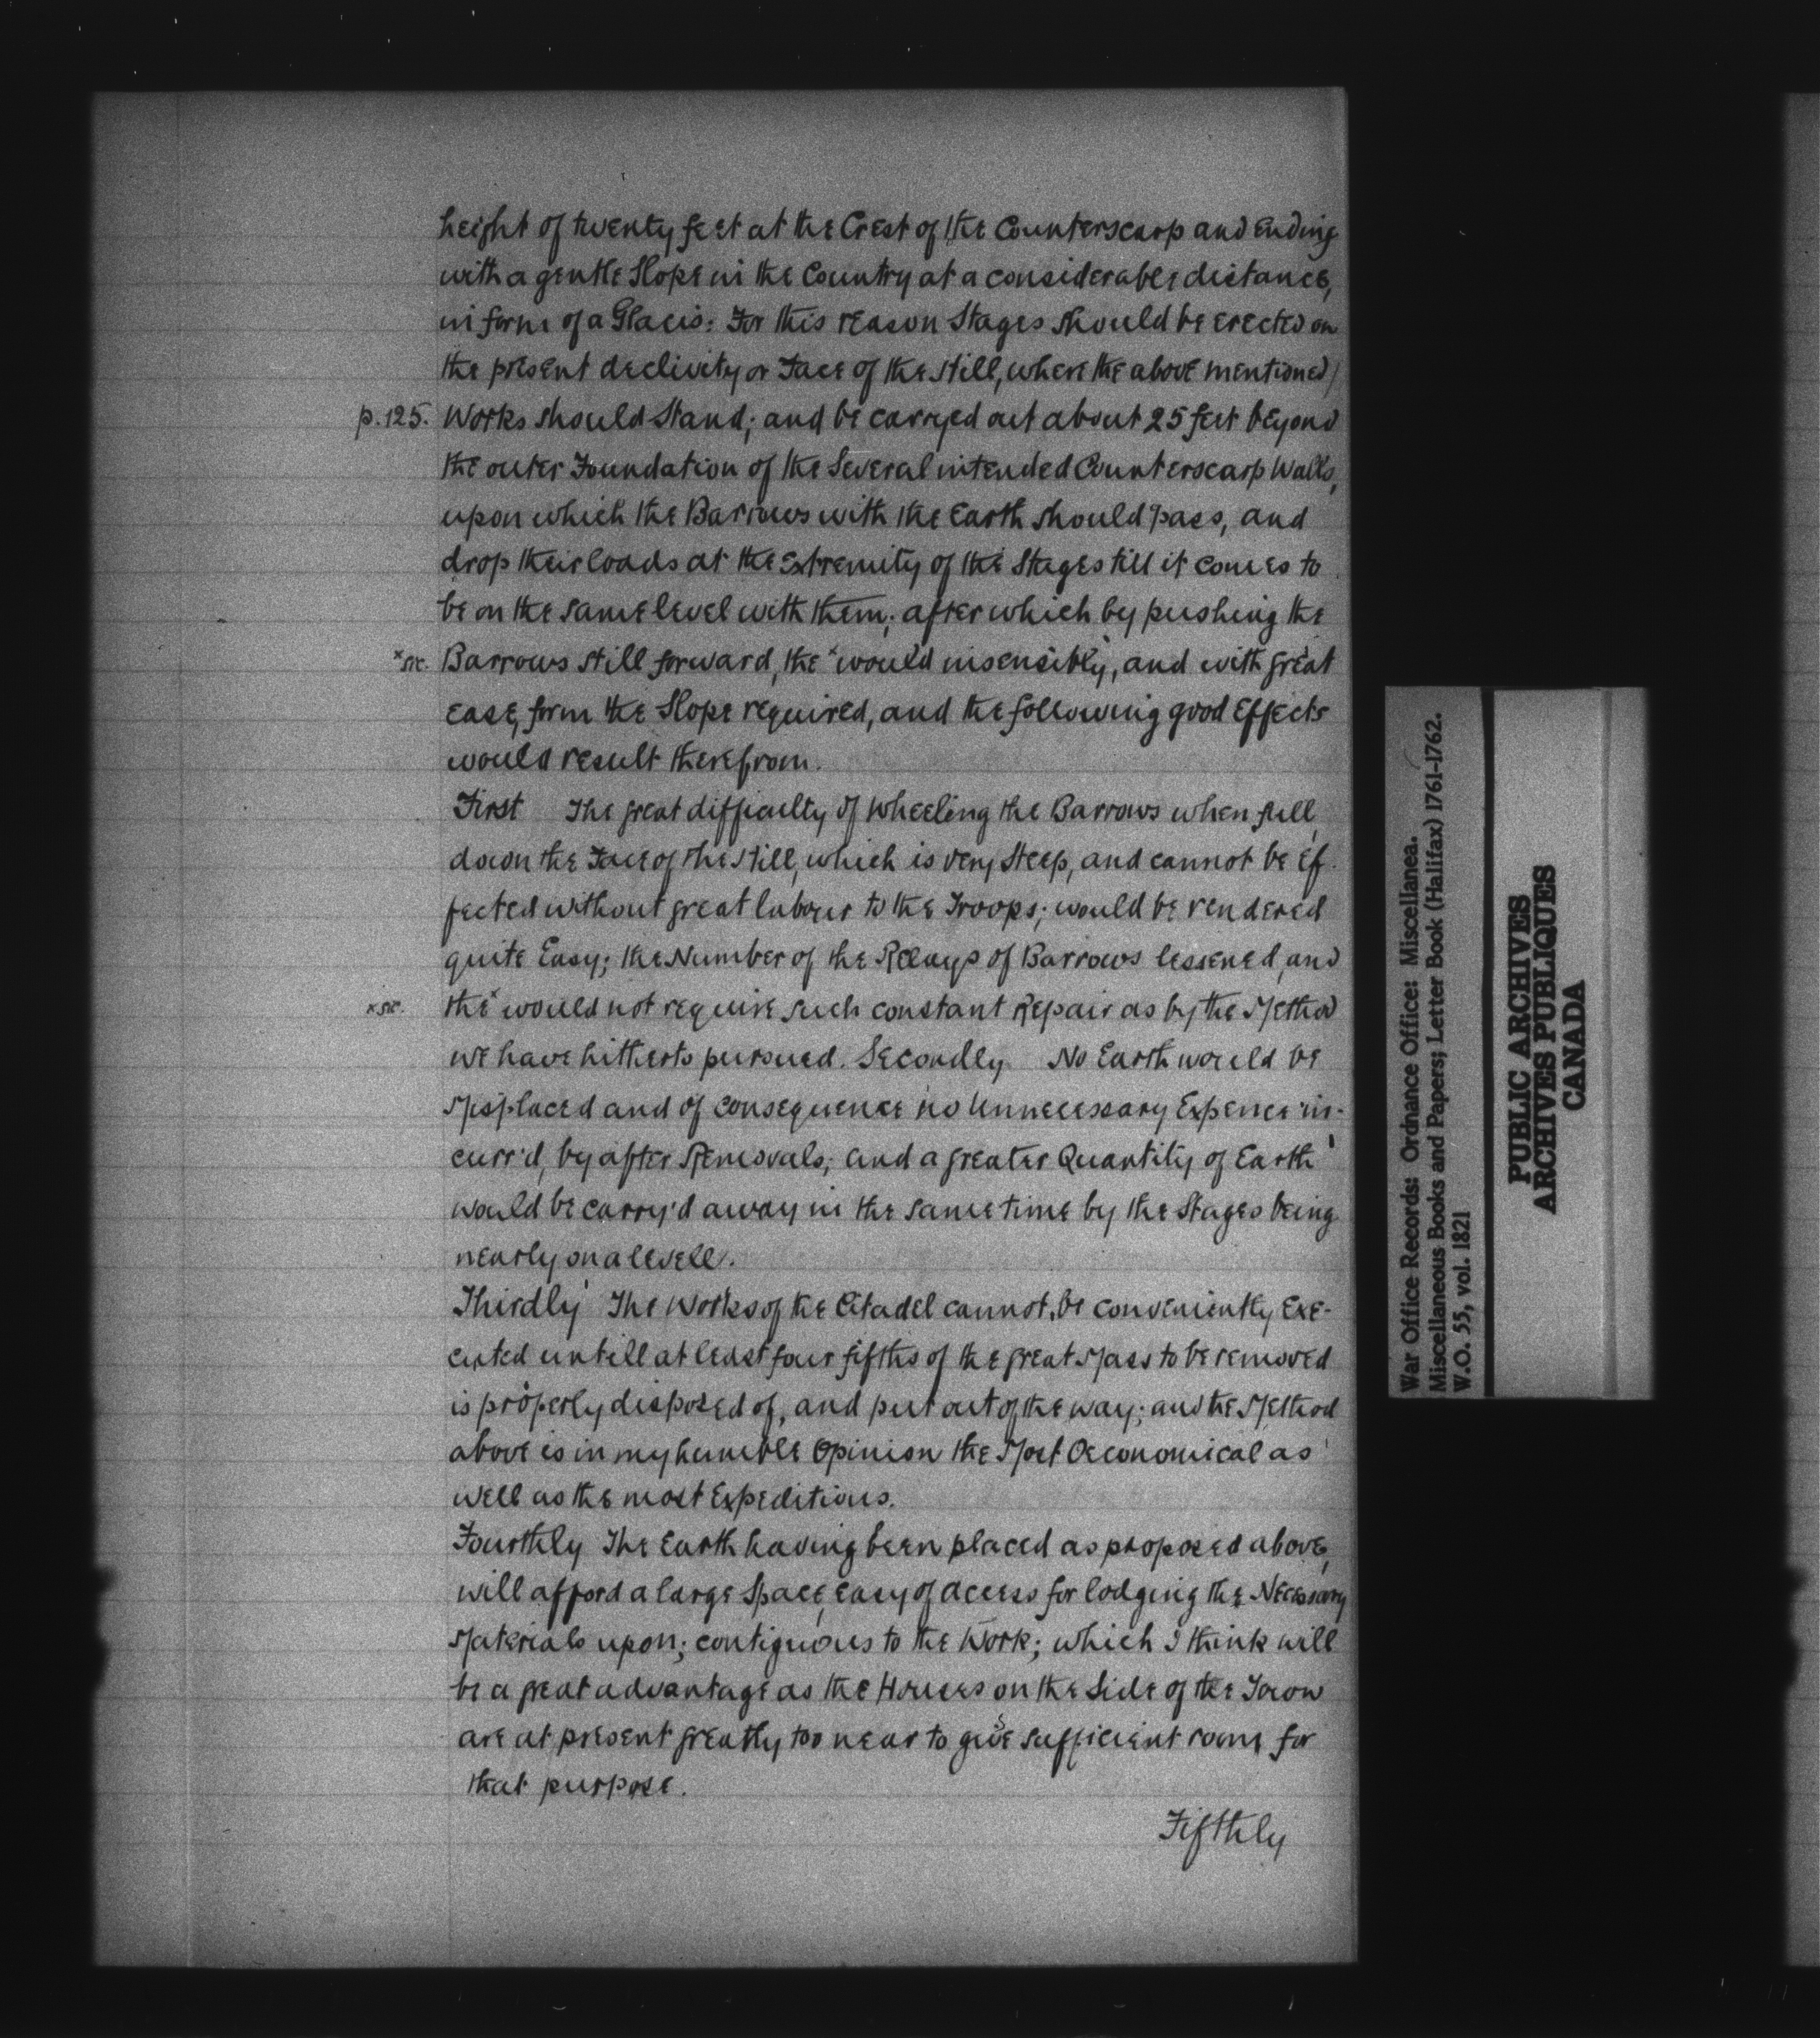 height of twenty feet at the Crest of the Counterscarp and Ending
with a gentle Slope in the Country at a considerable distance,
in form of a Glacis: For this reason Stages should be erected on
the present declivity or Face of the Hill, where the above mentioned
p. 125. Works should Stand; and be carryed out about 25 feet beyond
the outer Foundation of the Several intended Counterscarp Walls,
upon which the Barrows with the Earth should pass, and
drop their loads at the Extremity of the Stages till it comes to
be on the same level with them; after which by pushing the
x sic. Barrows still forward, the x would insensibly, and with great
ease, form the Slope required, and the following good Effects
would result therefrom.
First The great difficulty of Wheeling the Barrows when full,
down the Face of the Hill, which is very Steep, and cannot be Ef-
fected without great labour to the Troops; would be rendered
quite Easy; the Number of the Relays of Barrows lessened, and
x sic. the x would not require such constant Repair as by the Method
we have hitherto pursued. Secondly No Earth would be
Misplaced and of consequence no Unnecessary Expence in-
curr'd, by after Removals; and a greater Quantity of Earth
would be carry'd away in the same time by the Stages being
nearly on a levell.
Thirdly The Works of the Citadel cannot be conveniently Exe-
cuted untill at least four fifths of the great Mass to be removed
is properly disposed of, and put out of the way; and the Method
above is in my humble Opinion the Most Oeconomical as
well as the most Expeditious.
Fourthly The Earth having been placed as proposed above,
will afford a large Space, easy of access for lodging the Necessary
Materials upon; contiguous to the Work; which I think will
be a great advantage as the Houses on the Side of the Town
are at present greatly too near to give sufficient room for
that purpose.
Fifthly
War Office Records: Ordnance Office: Miscellanea.
Miscellaneous Books and Papers; Letter Book (Halifax) 1761-1762.
W.O. 55, vol. 1821
PUBLIC ARCHIVES
ARCHIVES PUBLIQUES
CANADA